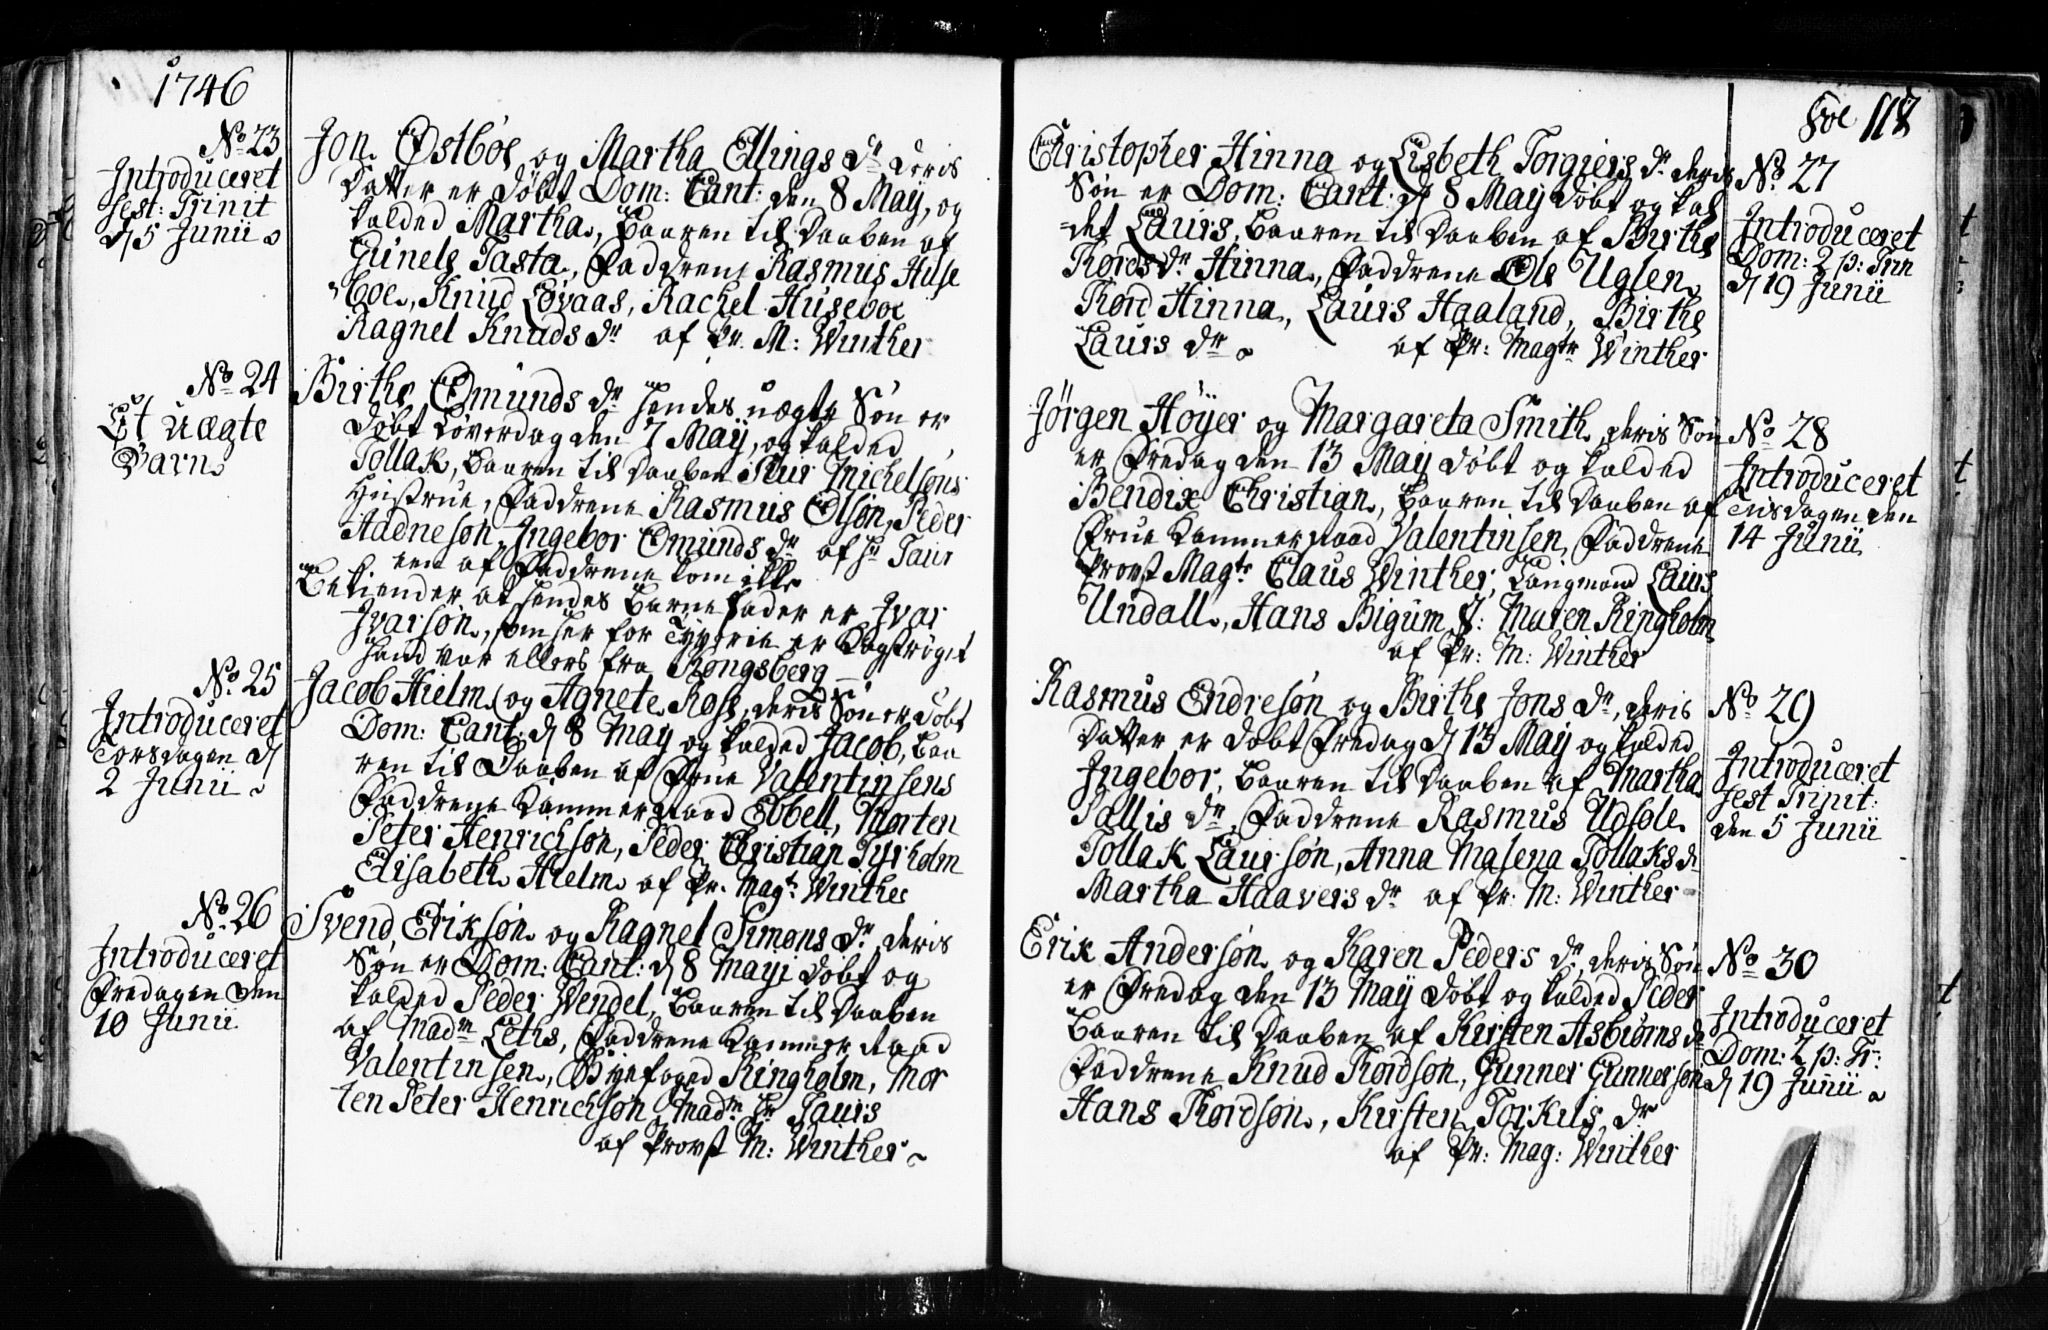 1746
No 23
Introduceret
fest: Trinit
d 5 Junii
Jon Østbøe og Martha Ellings dr deris
Datter er døbt Dom: Cant: den 8 May, og
kalded Martha, Baaren til Daaben af
Gunele Tasta, Faddrene Rasmus Huse
boe, Knud Løvaas, Rachel Huseboe
Ragnel Knuds dr af Pr. M: Winther
No 24
Et uægte
Barn
Birthe Omunds dr hendes uægte Søn er
døbt Løverdag den 7 May, og kalded
Tollak, Baaren til Daaben Siur Michelsøns
Hustrue, Faddrene Rasmus Olsøn, Peder
Aadnesøn, Ingebor Omunds dr af hr Taur
een af Faddrene kom ikke
Bekiender at hendes Barnefader er Ivar
Ivarsøn, som her for Tyverie er Kagstrøget
hand var ellers fra Kongsberg
No 25
Introduceret
Torsdagen d
2 Junii
Jacob Hielm og Agnete Rose, deris Søn er døbt
Dom: Cant: d 8 May og kalded Jacob, Baa
ren til Daaben af Frue Valentinsens
Faddrene Kammerraad Ebbell, Morten
Peter Henrichsøn, Peder Christian Tyrholm
Elisabeth Hielm af Pr. Magr Winther
No 26
Introduceret
Fredagen den
10 Junii
Svend Eriksøn og Ragnel Simons dr, deris
Søn er Dom: Cant: d 8 Mayi døbt og
kalded Peder Wendel, Baaren til Daaben
af Madm Leths, Faddrene Kammerraad
Valentinsen, Byefoged Ringholm, Mor
ten Peter Henrichsøn Madm hr Taurs
af Provst M: Winther
Fol 117
Christopher Hinna og Lisbeth Torgiers dr deris
Søn er Dom: Cant: d 8 May døbt og kal
det Laurs, Baaren til Daaben af Birthe
Tords dr Hinna, Faddrene Ole Uglen
Tord Hinna, Laurs Haaland, Birthe
Laurs dr af Pr: Magtr Winther
No 27
Introduceret
Dom: 2 p: Trin
d 19 Junii
Jørgen Höyer og Margareta Smith, deris Søn
er Fredag den 13 May døbt og kalded
Bendix Christian, Baaren til Daaben af
Frue Kammerraad Valentinsen, Faddrene
Provst Magtr Claus Winther, Laugmand Laurs
Undall, Hans Bigum, J: Maren Ringholm
af Pr: M: Winther
No 28
Introduceret
Tiisdagen den
14 Junii
Rasmus Endresøn og Birthe Jons dr, deris
Datter er døbt Fredag d 13 May og kalded
Ingebor, Baaren til Daaben af Martha
Pallis dr, Faddrene Rasmus Udsole
Tollak Laursøn, Anna Malena Tollaks d
Martha Haavers dr af Pr: M: Winther
No 29
Introduceret
fest Trinit:
den 5 Junii
Erik Andersøn og Karen Peders dr, deris Søn
er Fredag den 13 May døbt og kalded Peder
Baaren til Daaben af Kirsten Asbiørns d
Faddrene Knud Tordsøn, Gunner Gunnersøn
Hans Tordsøn, Kirsten Torkils dr
af Pr: Mag: Winther
No 30
Introduceret
Dom: 2 p: Tr:
d 19 Junii